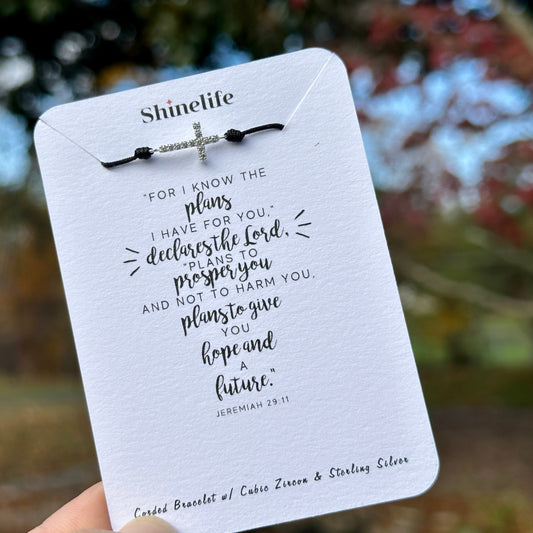 Shinelife
"FOR I KNOW THE
plans
I HAVE FOR YOU,"
declares the Lord,
"PLANS TO
prosper you
AND NOT TO HARM YOU,
plans to give
YOU
hope and
A
future."
JEREMIAH 29:11
Corded Bracelet w/ Cubic Zircon & Sterling Silver